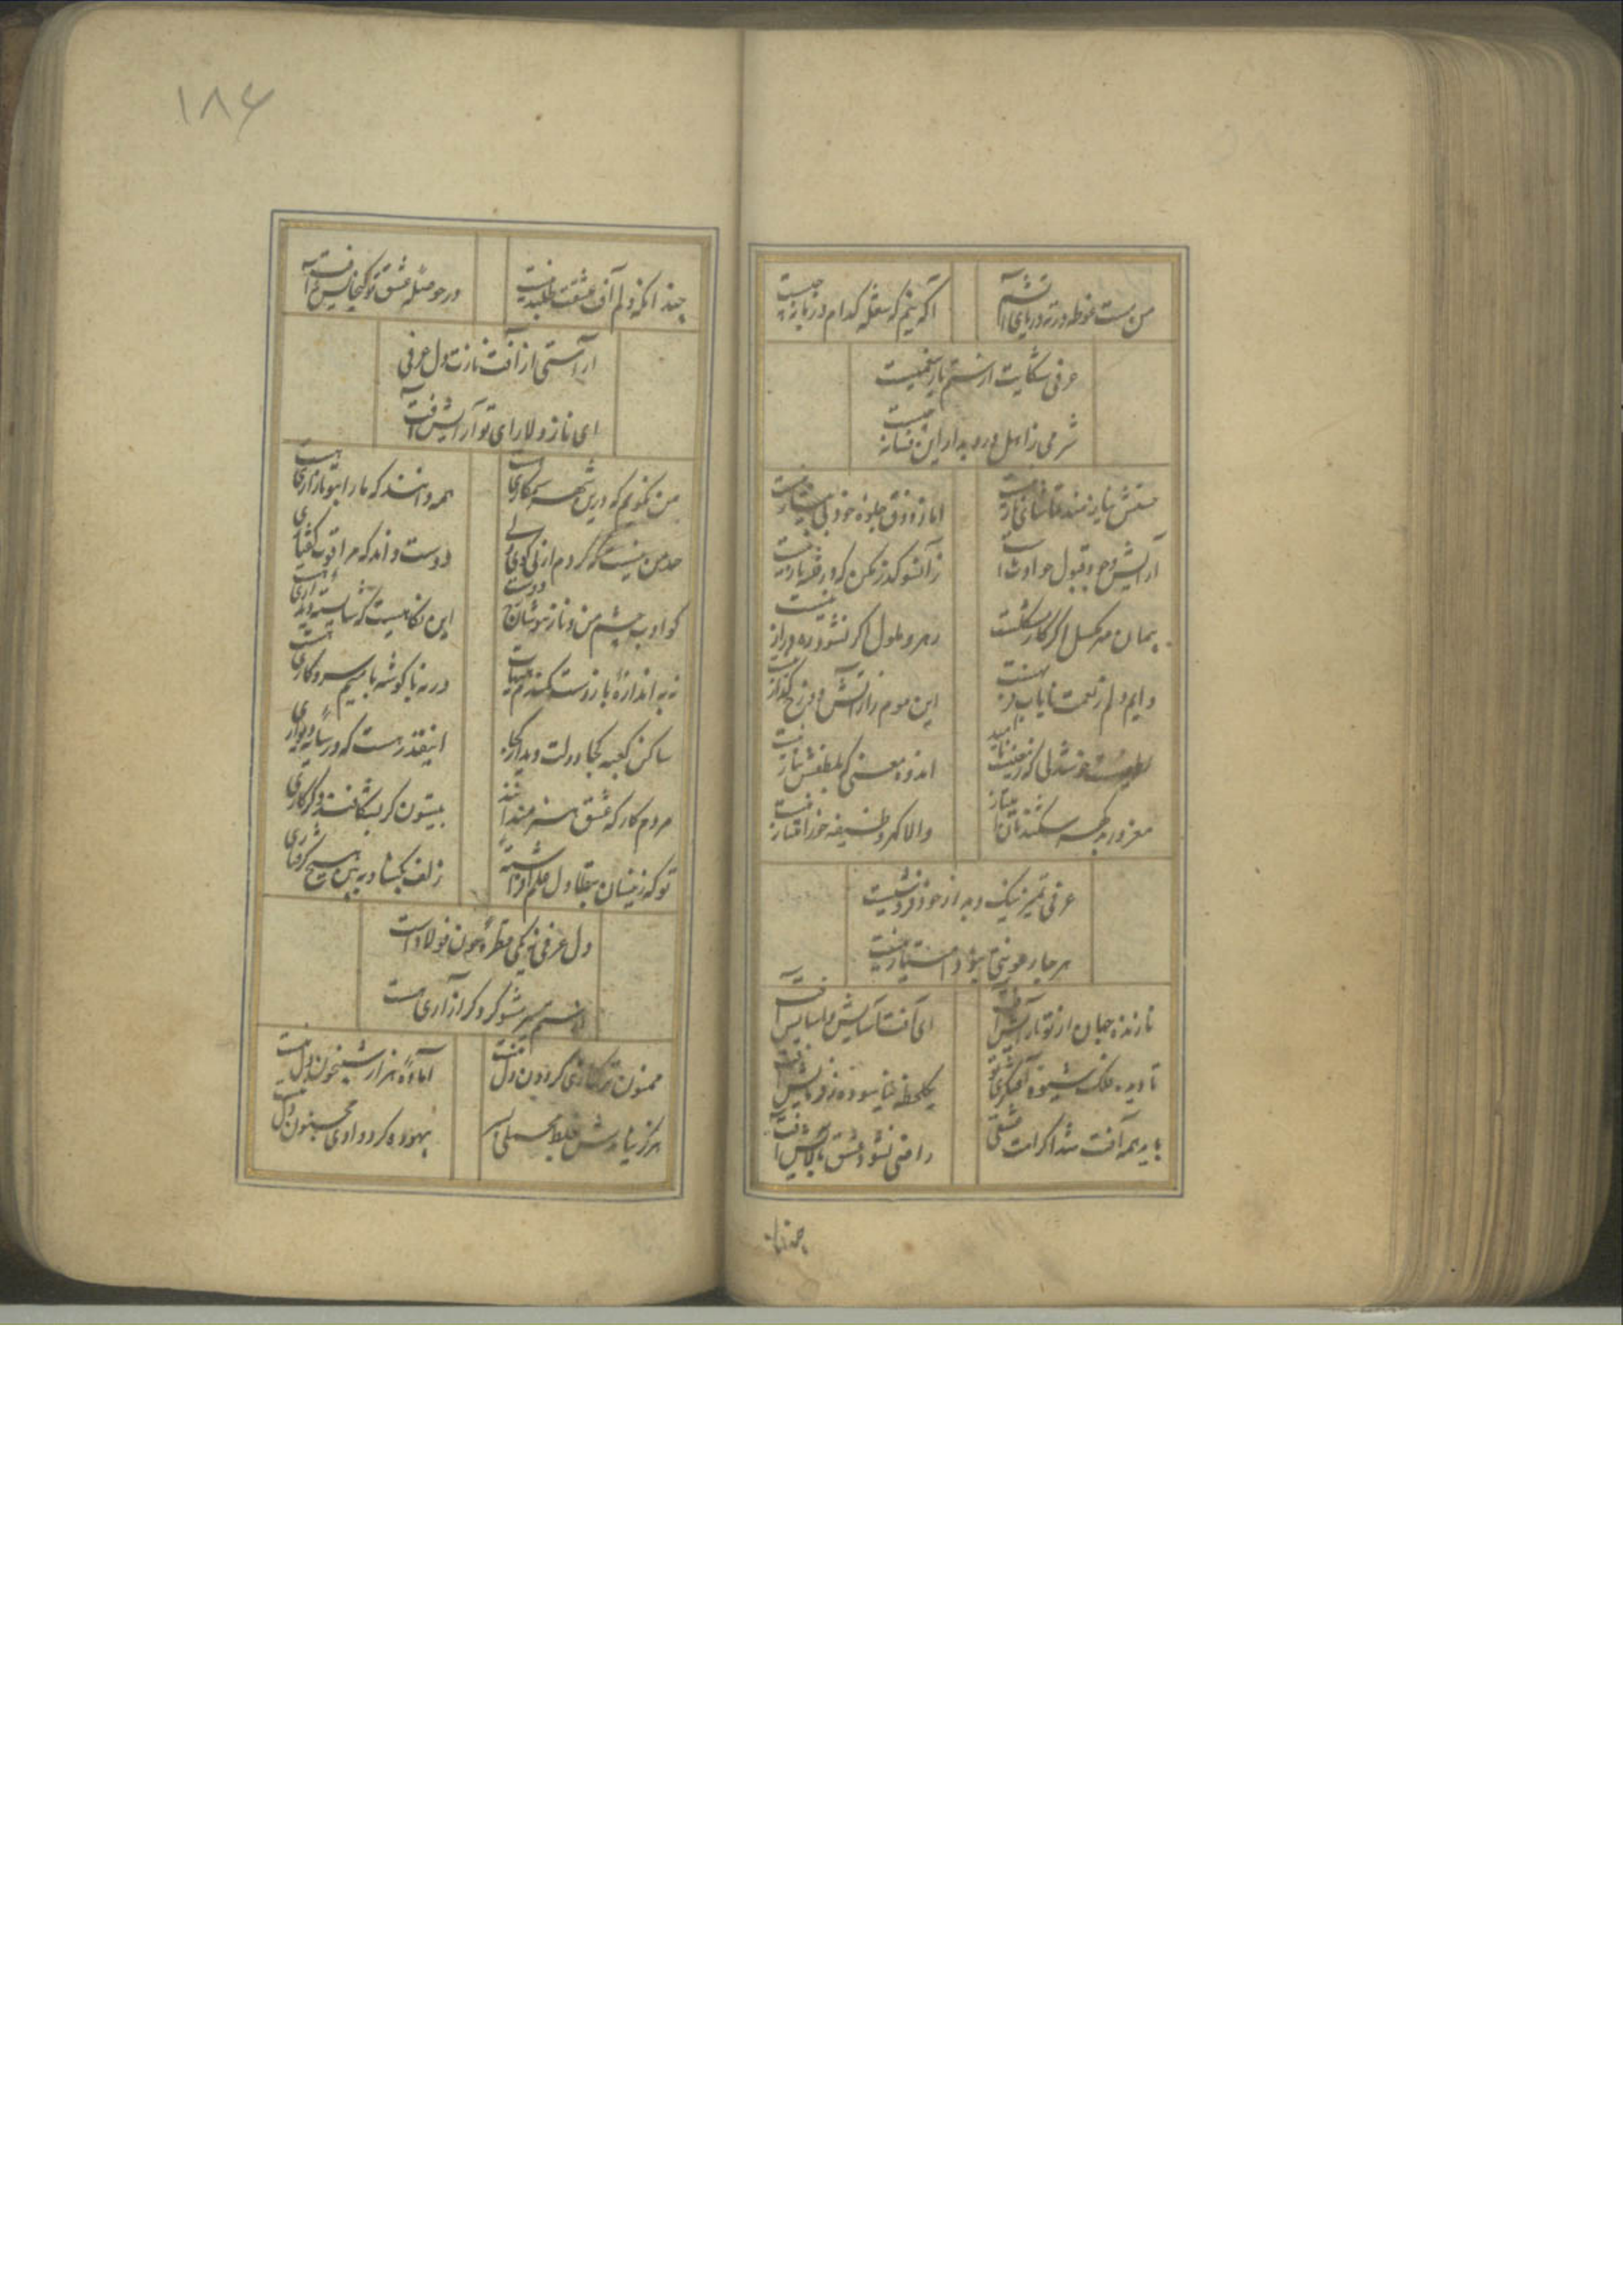 من مست غوطه در ته دریای آتشم
آگه نیم که شعله کدام و زبانه چیست
عرفی شکایت از ستم یار بهر چیست
شرمی ز اهل درد بدار این فسانه چیست
حسنش نیازمند تماشای ناز نیست
اما ز ذوق جلوه خود بی نیاز نیست
آرایش وجود قبول حوادث است
زآنسو گذر مکن که در فتنه باز نیست
پیمان مهر مگسل اگر کار مشکلست
رهرو ملول اگر نشود ره دراز نیست
دایم دلم ز نعمت نایاب در
این موم را ز آتش دوزخ گداز نیست
خوشدلی که ز معنیست ناامید
اندوه معنی که بلطفش نیاز نیست
مغرور
والا گهر وظیفه خور امتیاز نیست
عرفی تمیز نیک و بد از خود فرو نشست
هر جا رعونتی نبود امتیاز نیست
نازنده جهان از تو بآرایش آفت
ای آفت آسایش و آسایش آفت
تا دیده فلک شیوه آفتگری تو
یکلحظه نیاسوده ز فرمایش آفت
با این همه آفت شد اگر امت عشقی
راضی نشود عشق بآلایش آفت
چندان
۱۸۶
چندانکه دلم آفت عشقت طلبیدست
در حوصله عشق تو گنجایش آفت
آراستی از آفت نازت دل عرفی
ای ناز دلارای تو آرایش آفت
من نگویم که درین شهر ستمکاری هست
همه دانند که ما را بتو بازاری هست
حد من نیست که گردم ز پی کوی ولی
دوست داند که مرا قوت رفتاری هست
گو ادب چشم من و ناز بپوشان ای دوست
این نگاهیست که شایسته دیداری هست
نه به اندازه بازوست کمندم هیهات
ورنه با گوشه بامیم سر و کاری هست
ساکن کعبه کجا دولت دیدار کجا
اینقدر هست که در سایه دیواری هست
مردم کار که عشق هنرمند
بیستون گر بشکافند دگر کاری هست
تو که زینسان بجفا دل
زلف بگشا و ببین هیچ گرفتاری هست
دل عرفی یکی قطره خون فولاد است
مشو گر دگر آزاری هست
ممنون ترکتازی گردون دل منست
آماده هزار شبیخون دل منست
هرگز نیامدش غلط محملی بسر
بیهوده گرد وادی مجنون دل منست